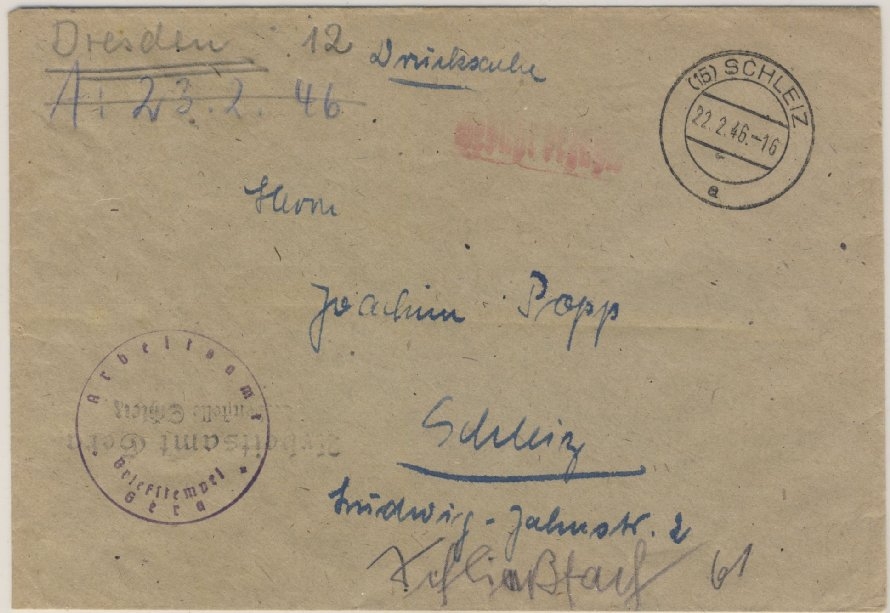 Dresden 12
A: 23.2.46
Drucksache
(15) SCHLEIZ
22.2.46.-16
a
Herrn
Joachim Popp
Schleiz
Ludwig-Jahnstr. 2
Schließfach 61
Arbeitsamt
Briefstempel
Gera
Arbeitsamt Gera